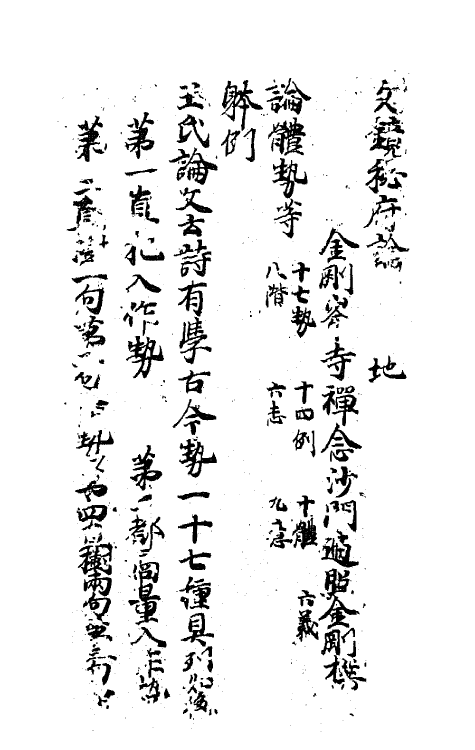 文鏡秘府論 地
金剛峯寺禪念沙門遍照金剛撰
論體勢等 十七勢 十四例 十體 六義
八階 六志 九意
躰例
王氏論文云詩有學古今勢一十七種具列如後
第一直把入作勢 第二都啇量入作勢
第三直樹一句第二句入作勢 第四直樹兩句第三句